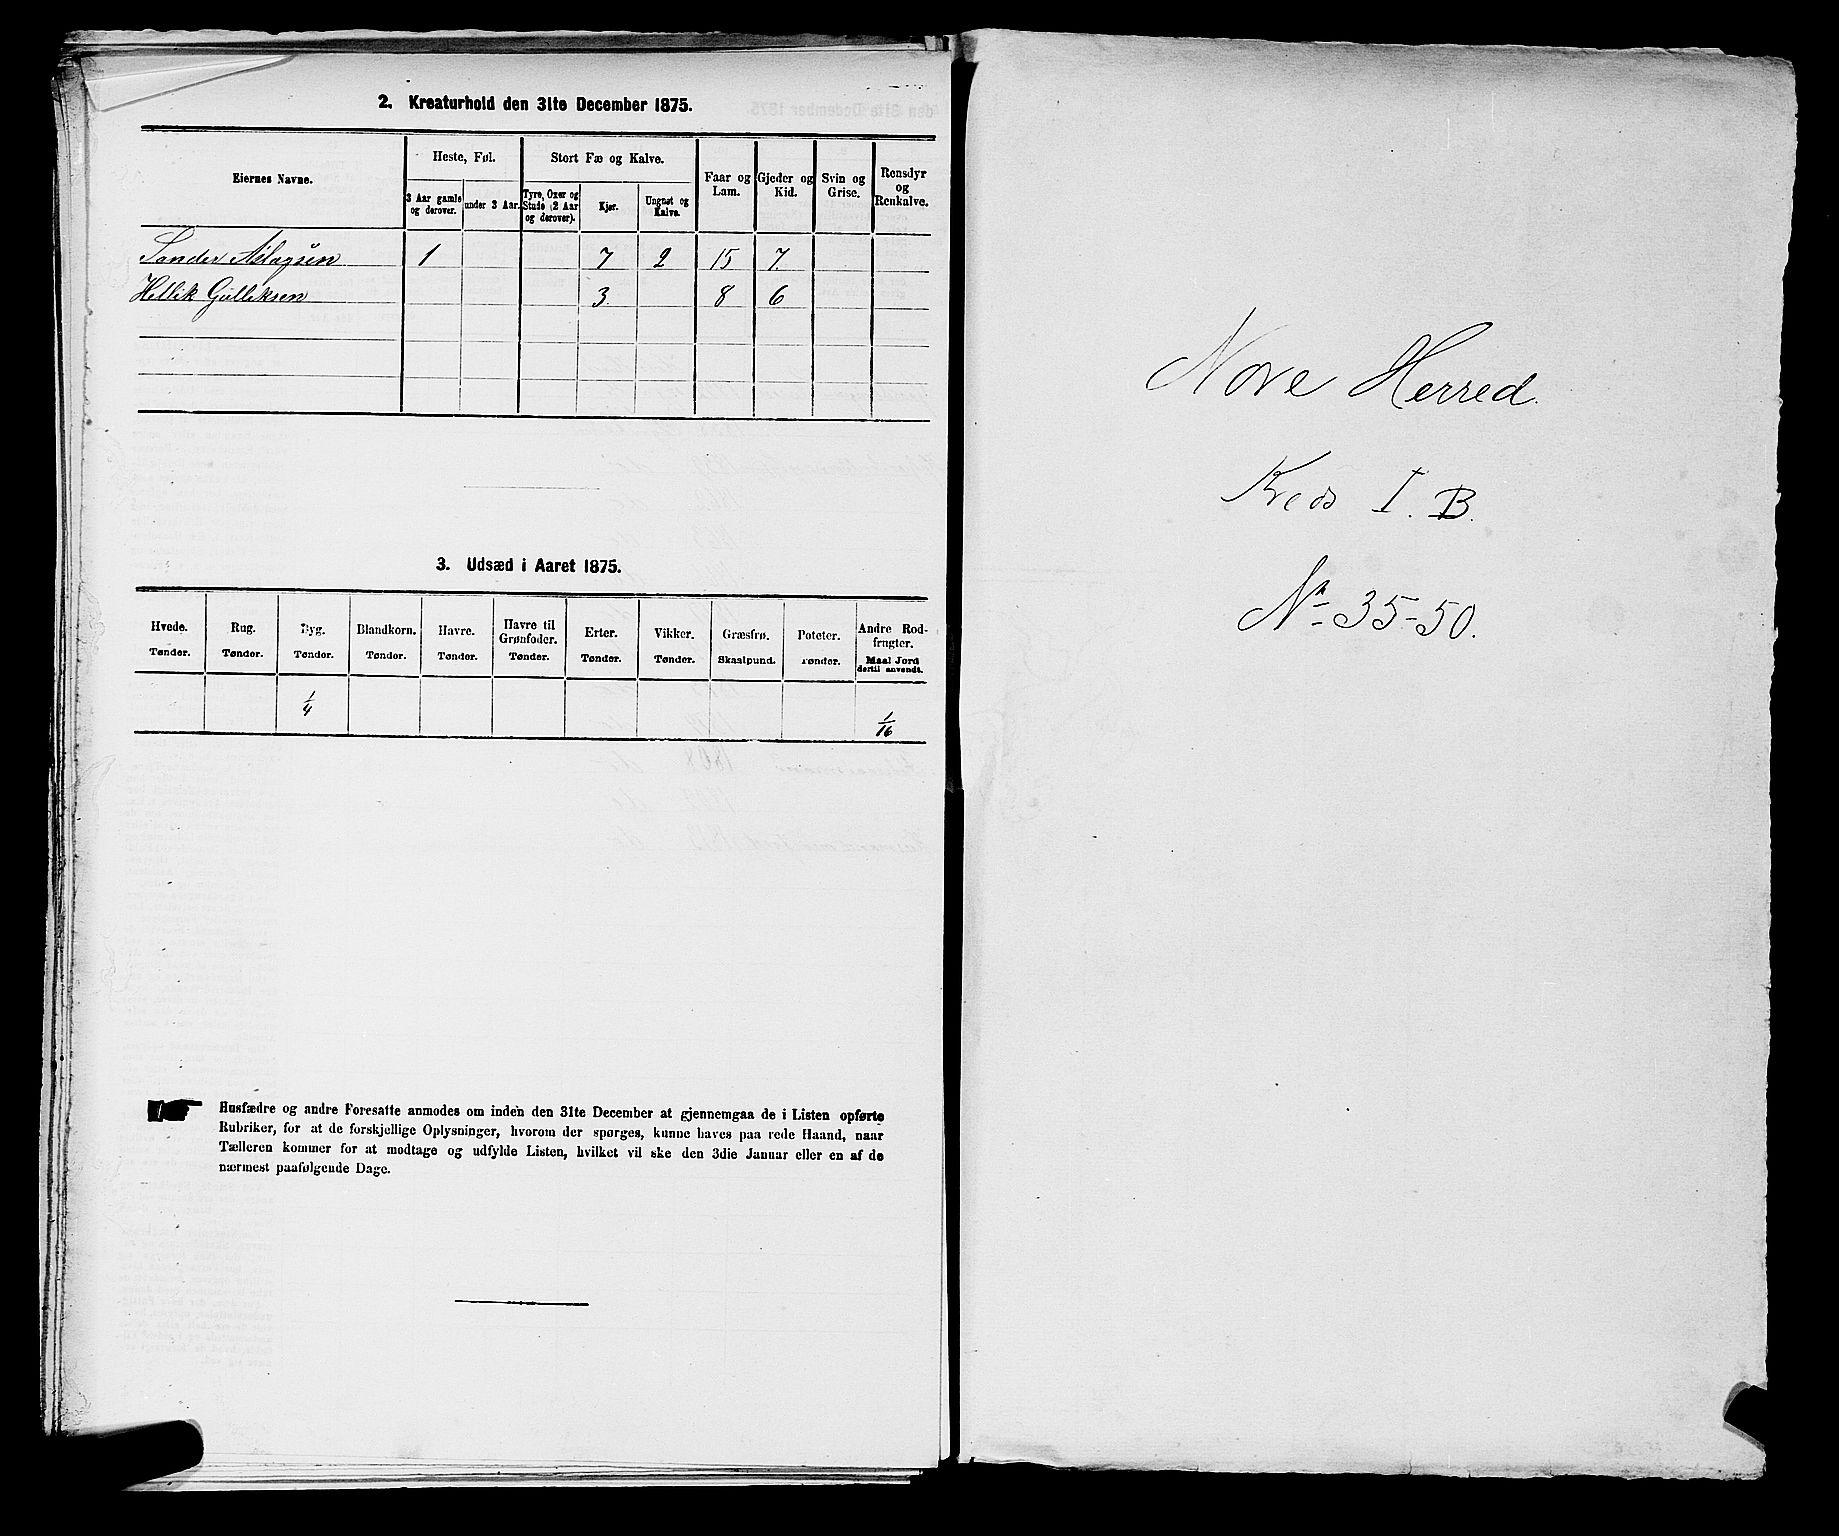 2. Kreaturhold den 31te December 1875.
Eiernes Navne.
Heste, Føl.
3 Aar gamle og derover.
under 3 Aar.
Stort Fæ og Kalve.
Tyre, Oxer og Stude (2 Aar og derover).
Kjør.
Ungnøt og Kalve.
Faar og Lam.
Gjeder og Kid.
Svin og Grise.
Rensdyr og Renkalve.
Sander Aslagsen 1 7 2 15 7.
Hellik Gulleksen 3. 8 6
3. Udsæd i Aaret 1875.
Hvede. Tønder.
Rug. Tønder.
Byg. Tønder.
Blandkorn. Tønder.
Havre. Tønder.
Havre til Grønfoder. Tønder.
Erter. Tønder.
Vikker. Tønder.
Græsfrø. Skaalpund.
Poteter. Tønder.
Andre Rodfrugter. Maal Jord dertil anvendt.
1/4 1/16
Husfædre og andre Foresatte anmodes om inden den 31te December at gjennemgaa de i Listen opførte
Rubriker, for at de forskjellige Oplysninger, hvorom der spørges, kunne haves paa rede Haand, naar
Tælleren kommer for at modtage og udfylde Listen, hvilket vil ske den 3die Januar eller en af de
nærmest paafølgende Dage.
Nore Herred.
Kreds I. B.
No 35-50.